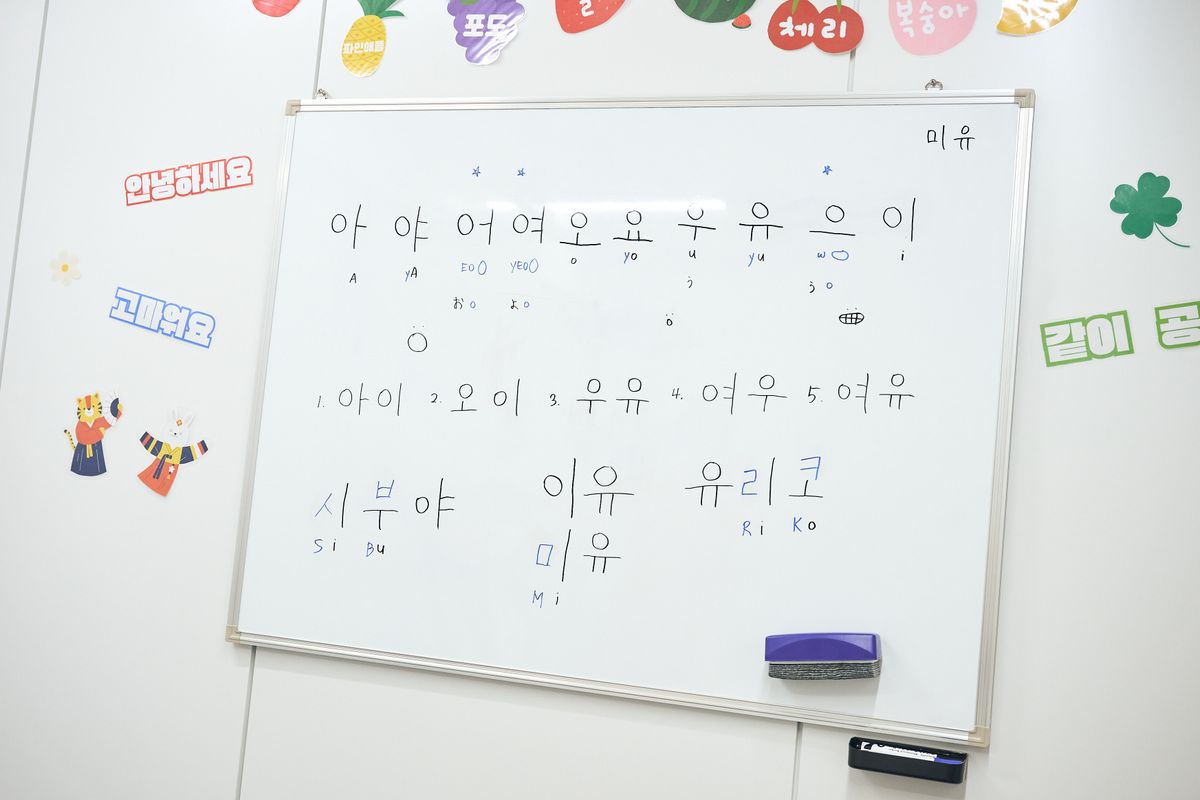 파인애플
포도
체리
복숭아
안녕하세요
고마워요
같이 공
미유
아 야 어 여 오 요 우 유 으 이
A yA EO yEO o yo u yu w i
お よ う う
1. 아이 2. 오이 3. 우유 4. 여우 5. 여유
시부야 이유 유리코
Si Bu Ri Ko
미유
Mi